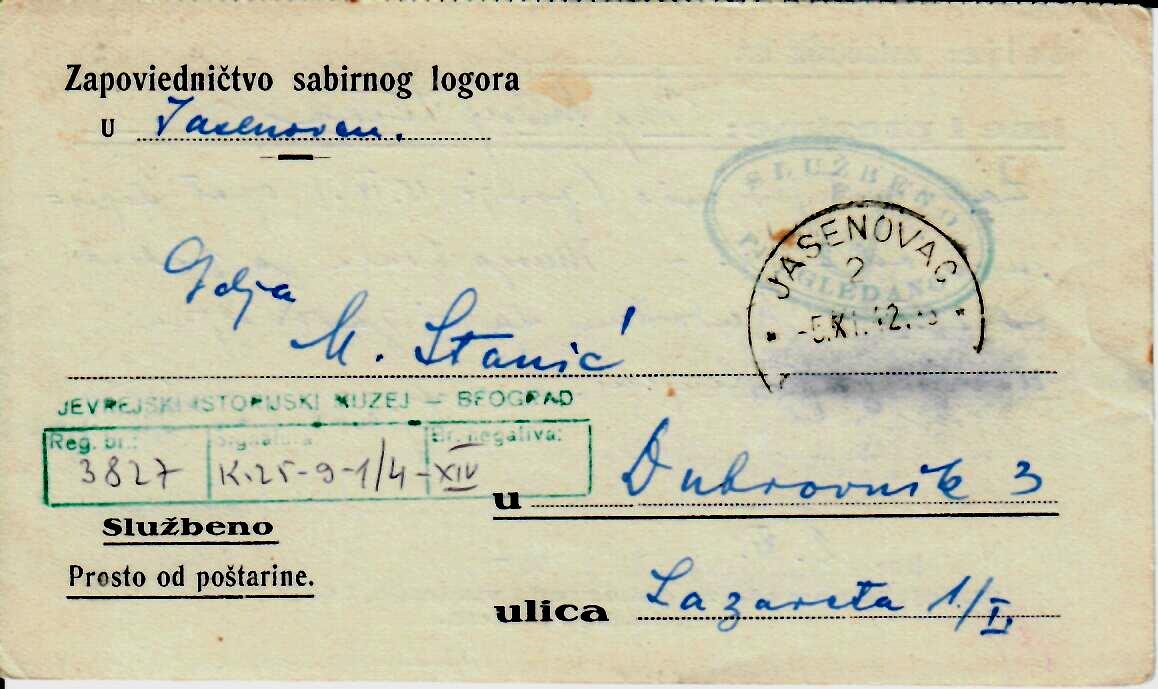 Zapoviedničtvo sabirnog logora
u Jasenovcu.
SLUŽBENO
PREGLEDANO
JASENOVAC
2
-5.XI.42.
Gdja
M. Stanić
JEVREJSKI ISTORIJSKI MUZEJ — BEOGRAD
Reg. br.: Signatura Br. negativa:
3827 K.25-9-1/4-XIV
u Dubrovnik 3
Službeno
Prosto od poštarine.
ulica Lazareta 1./I.